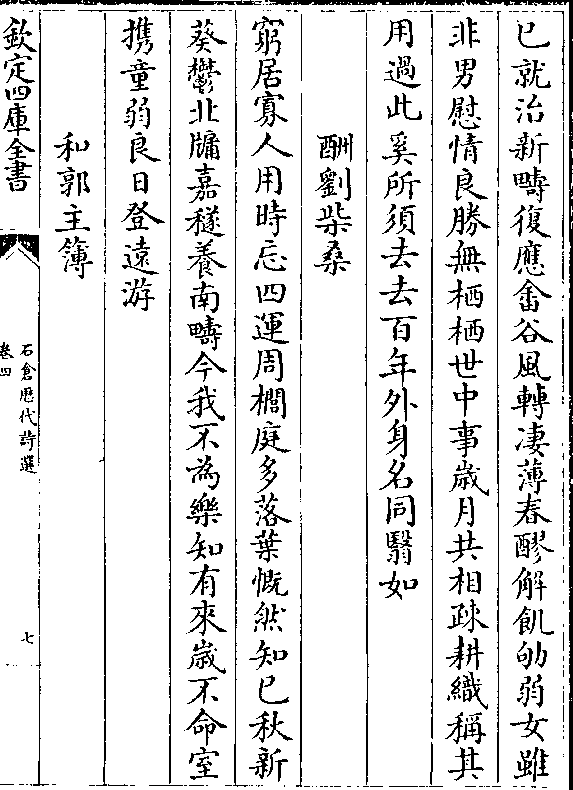 已就治新疇復應畬谷風轉凄薄春醪解飢劬弱女雖
非男慰情良勝無栖栖世中事歳月共相疎耕織稱其
用過此奚所須去去百年外身名同翳如
酬劉柴桑
窮居寡人用時忘四運周櫚庭多落葉慨然知已秋新
葵鬱北牖嘉穟養南疇今我不為樂知有來歳不命室
携童弱良日登遠游
和郭主簿
欽定四庫全書
石倉歴代詩選
卷四
七